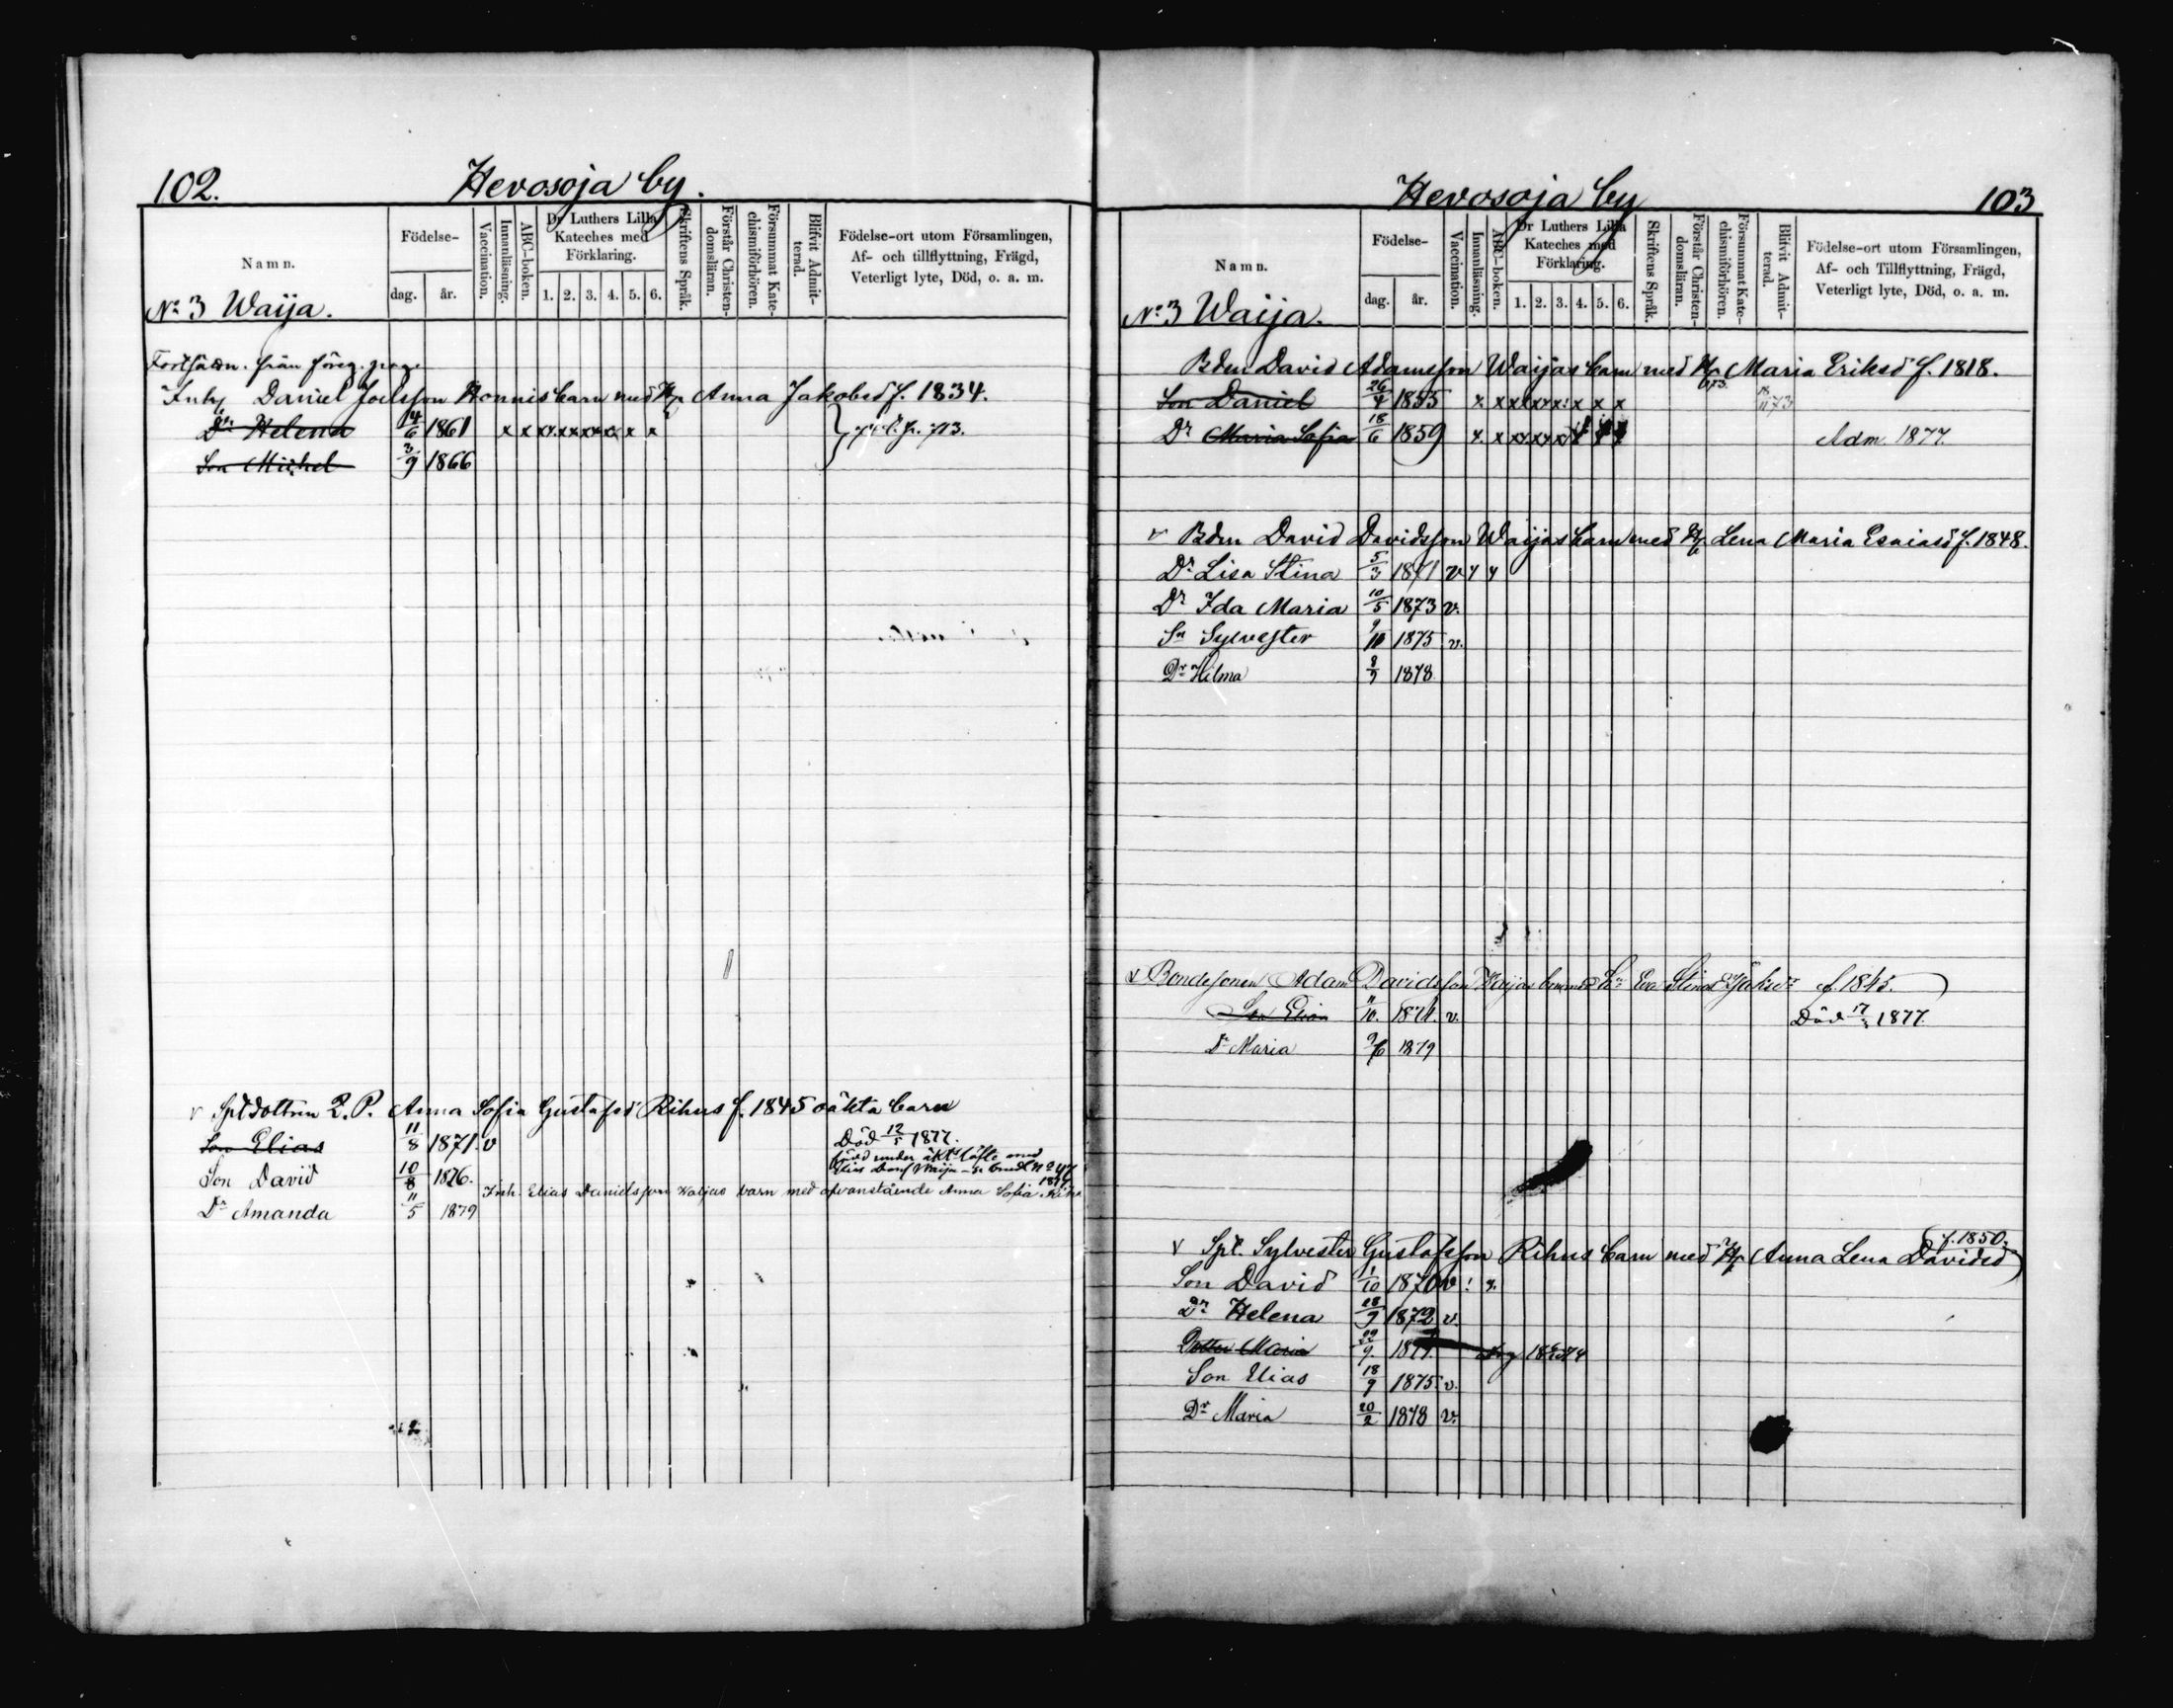 102.
Hevosoja by.
Namn.
Födelse-
dag.
år.
Vaccination.
Innanläsning.
ABC-boken.
Dr Luthers Lilla
Kateches med
Förklaring.
1. 2. 3. 4. 5. 6.
Skriftens Språk.
Förstår Christen-
domsläran.
Försummat Kate-
chismiförhören.
Blifvit Admit-
terad.
Födelse-ort utom Församlingen,
Af- och tillflyttning, Frägd,
Veterligt lyte, Död, o. a. m.
No 3 Waija.
från föreg. page
Inh. Daniel Joelsson Honnis barn med H. Anna Jakobsd f. 1834.
Dr Helena 14/6 1861 x x x x x x x x x
Son Michel 3/9 1866
v Spldottren L. P. Anna Sofia Gustafsd Rihus f. 1845 oäkta barn
Son Elias 11/8 1871. v Död 12/5 1877.
född under äkt. löfte med
Elias Waija
Son David 10/8 1876.
Inh. Elias Danielsson Waijas barn med ofvanstående Anna Sofia
Dr Amanda 11/5 1879
Hevosoja by
103
Namn.
Födelse-
dag.
år.
Vaccination.
Innanläsning.
ABC-boken.
Dr Luthers Lilla
Kateches med
Förklaring.
1. 2. 3. 4. 5. 6.
Skriftens Språk.
Förstår Christen-
domsläran.
Försummat Kate-
chismiförhören.
Blifvit Admit-
terad.
Födelse-ort utom Församlingen,
Af- och Tillflyttning, Frägd,
Veterligt lyte, Död, o. a. m.
No 3 Waija.
Bden David Adamsson Waijas barn med H. Maria Eriksd f. 1818.
Son Daniel 26/4 1855 x x x x x x x x x
Dr Maria Sofia 18/6 1859 x x x x x Adm. 1877.
v Bden David Davidsson Waijas barn med H. Lena Maria Esaiasd f. 1848.
Dr Lisa Stina 5/3 1871 v
Dr Ida Maria 10/5 1873 v.
Sn Sylvester 9/10 1875 v.
Dr Hilma 8/7 1878
v Bondesonen Adam Davidsson Waijas barn med Eva Stina f. 1845.
Son Elias 11/10. 1874. v. Död 1877.
Dr Maria 9/6 1879
v Spl. Sylvester Gustafsson Rihus barn med H. Anna Lena Davidsd f. 1850.
Son David 1/10 1870 v
Dr Helena 28/9 1872 v.
Dotter Maria 22/9.
Son Elias 18/9 1875. v.
Dr Maria 20/2 1878 v.